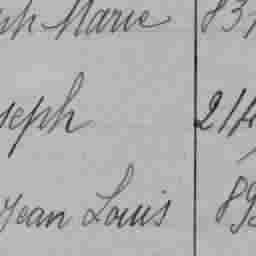 ph Marie 83
seph 21
Jean Louis 89